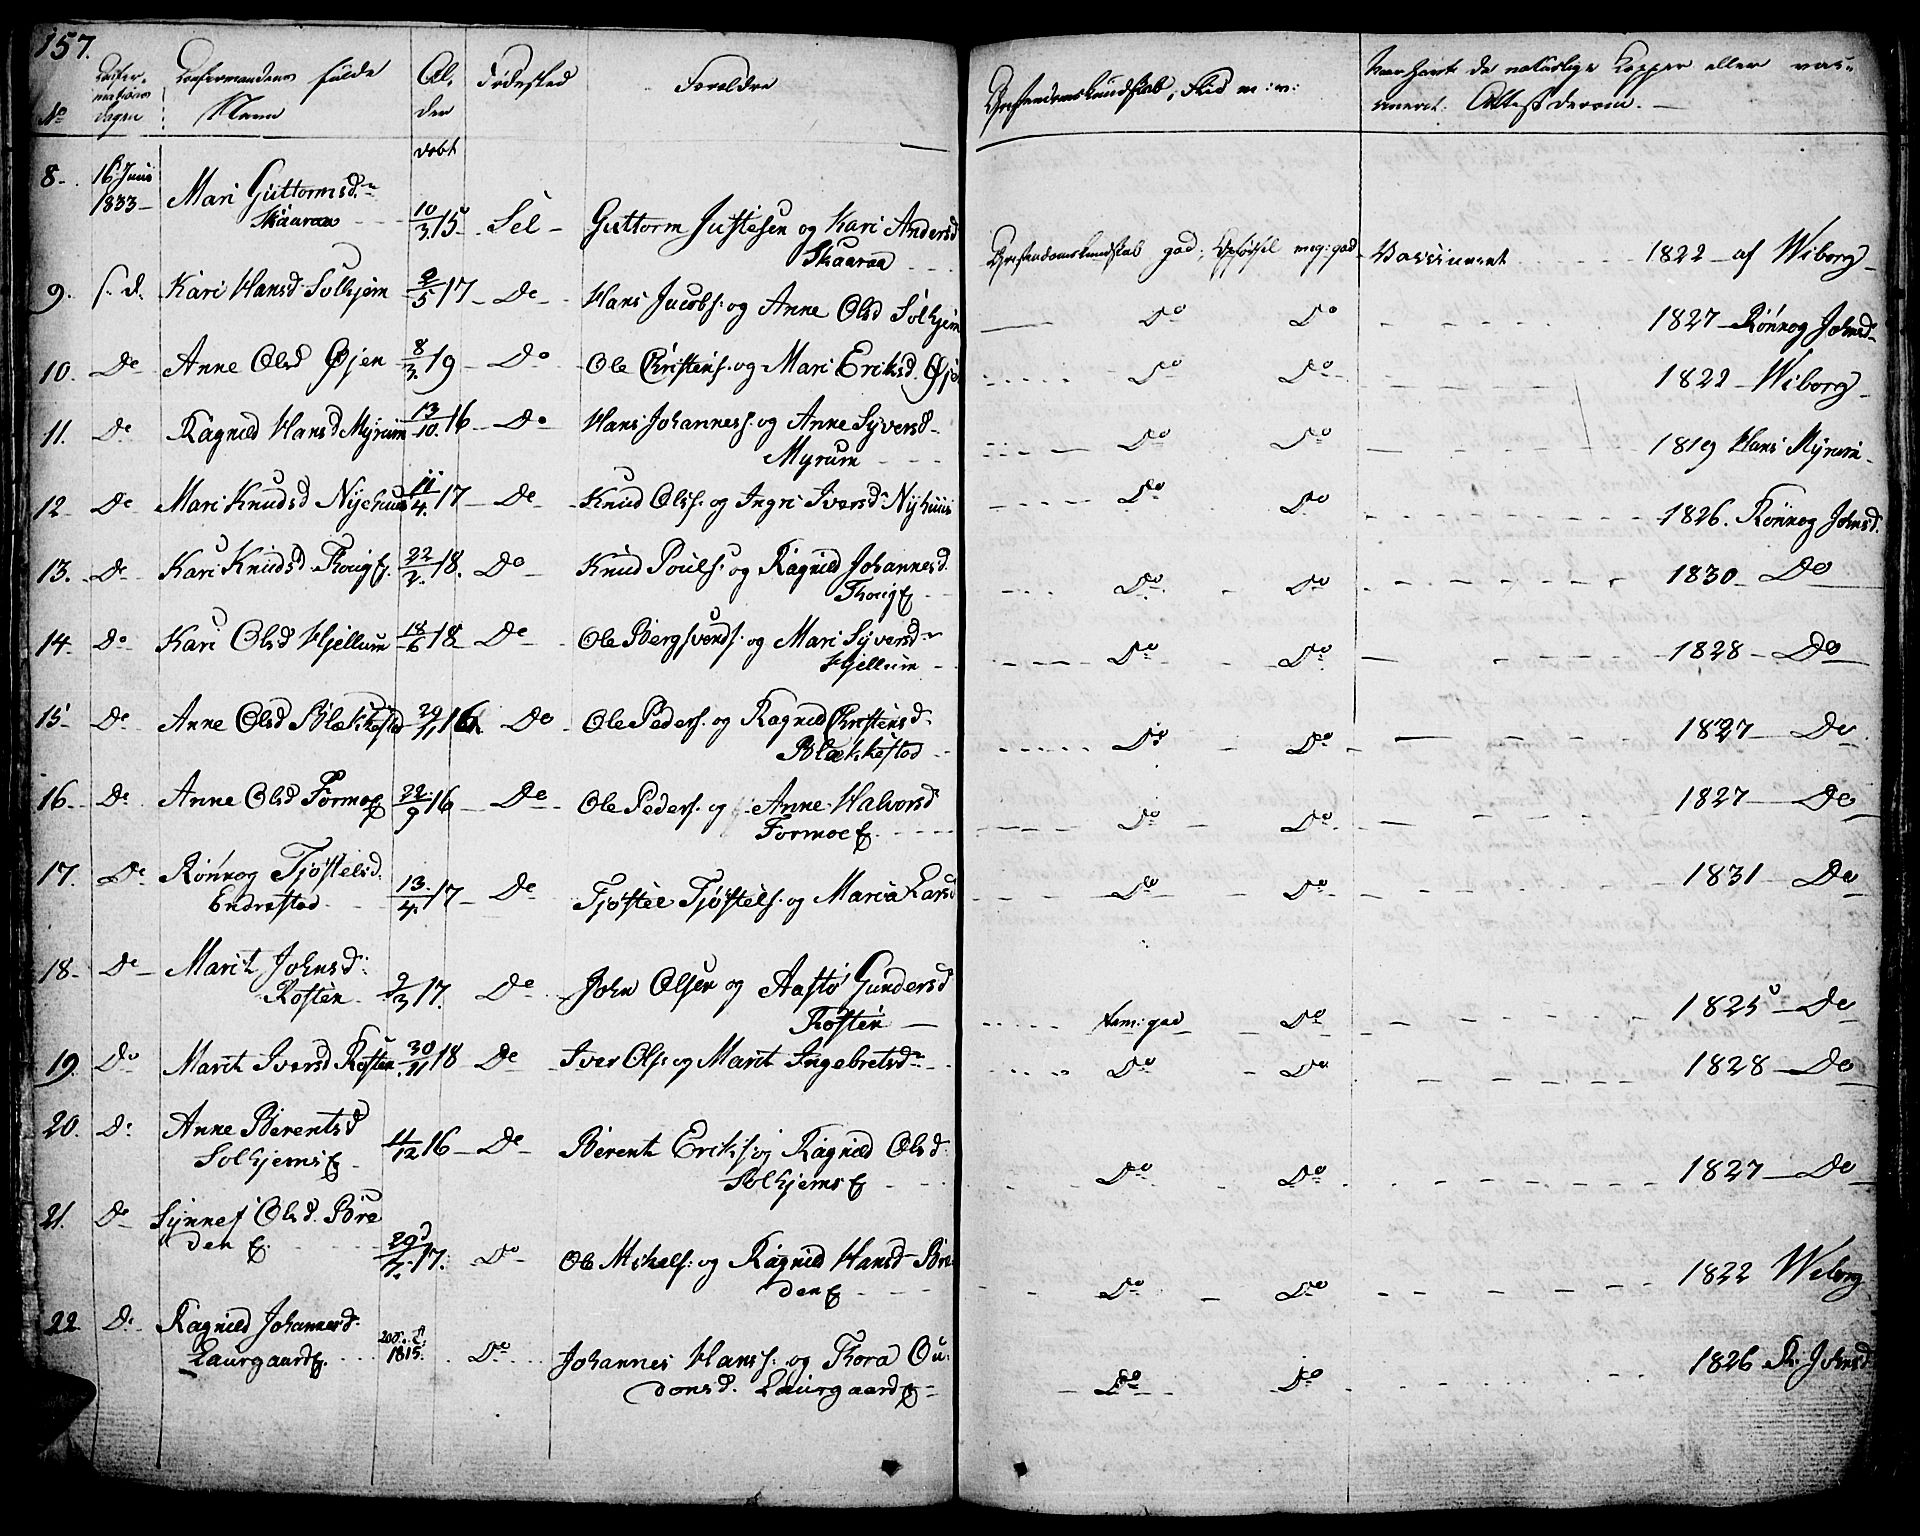 157.
No
Confir-
mations
Dagen
Confirmandens fulde
Navn
Al-
der
døbt
Fødested
Forældre
Christendomskundskab, Flid m: v:
Naar havt de naturlige Kopper eller vac-
cineret. Attest derom. —
8. 16 Juni 1833 — Mari Guttormsd. Skaaraa — 10/3 15 — Sel — Guttorm Justesen og Kari Andersd Skaaraa — Christendomskundskab god, Opførsel meg: god — Vaccineret — 1822 — af Wiborg
9. s. d. Kari Hansd Solhjem 2/5 17 — Do — Hans Jacobs. og Anne Olsd Solhjem — Do Do — 1827 — Rönnog Johnsd
10. Do Anne Olsd Øjen 8/3 19 — Do — Ole Christens. og Mari Eriksd. Øje — Do Do — 1822 — Wiborg
11. Do Ragnild Hansd Myrum 13/10 16 — Do — Hans Johanness. og Anne Syversd Myrum — Do Do — 1819 Hans Myrum
12. Do Mari Knudsd Nyehuus 11/4 17 — Do — Knud Olss. og Ingri Iversd Nyhuus — Do Do — 1826. Rönnog Johnsd.
13. Do Kari Knudsd 22/2 18. Do — Knud Pouls. og Ragnild Johannesd. — Do Do — 1830 — Do
14. Do Kari Olsd Hjellum 18/6 18 Do — Ole Bergsvends. og Mari Syversd Hjellum — Do Do — 1828 — Do
15. Do Anne Olsd Blækkestad 16 Do — Ole Peders. og Ragnild Christensd. Blækkestad — Do Do — 1827 — Do
16. Do Anne Olsd Formoe 22/9 16 — Do — Ole Peders. og Anne Halvorsd Formoe — Do Do — 1827 — Do
17. Do Rönnog Tjøstelsd. Endrestad 13/4 17 — Do — Tjøstel Tjøstels. og Maria Larsd — Do Do — 1831 — Do
18. Do Marit Johnsd. Rosten 9/3 17. Do — John Olsen og Aaste Gundersd Rosten — tem: god Do — 1825 — Do
19. Do Marit Iversd Rosten 30/11 18 — Do — Iver Ols. og Marit Ingebretsd — Do Do — 1828 — Do
20. Do Anne Berentsd Solhjems 11/12 16 — Do — Berent Eriks. og Ragnild Olsd. Solhjems — Do Do — 1827 — Do
21. Do Synnef Olsd. Breden 17. Do Ole Mikels. og Ragnild Hansd Breden — Do Do — 1822 Wiborg
22. Do Ragnild Johannesd. Laurgaard 1815. Do Johannes Hanss. og Thora Oudonsd. Laurgaard — Do Do — 1826 R. Johnsd